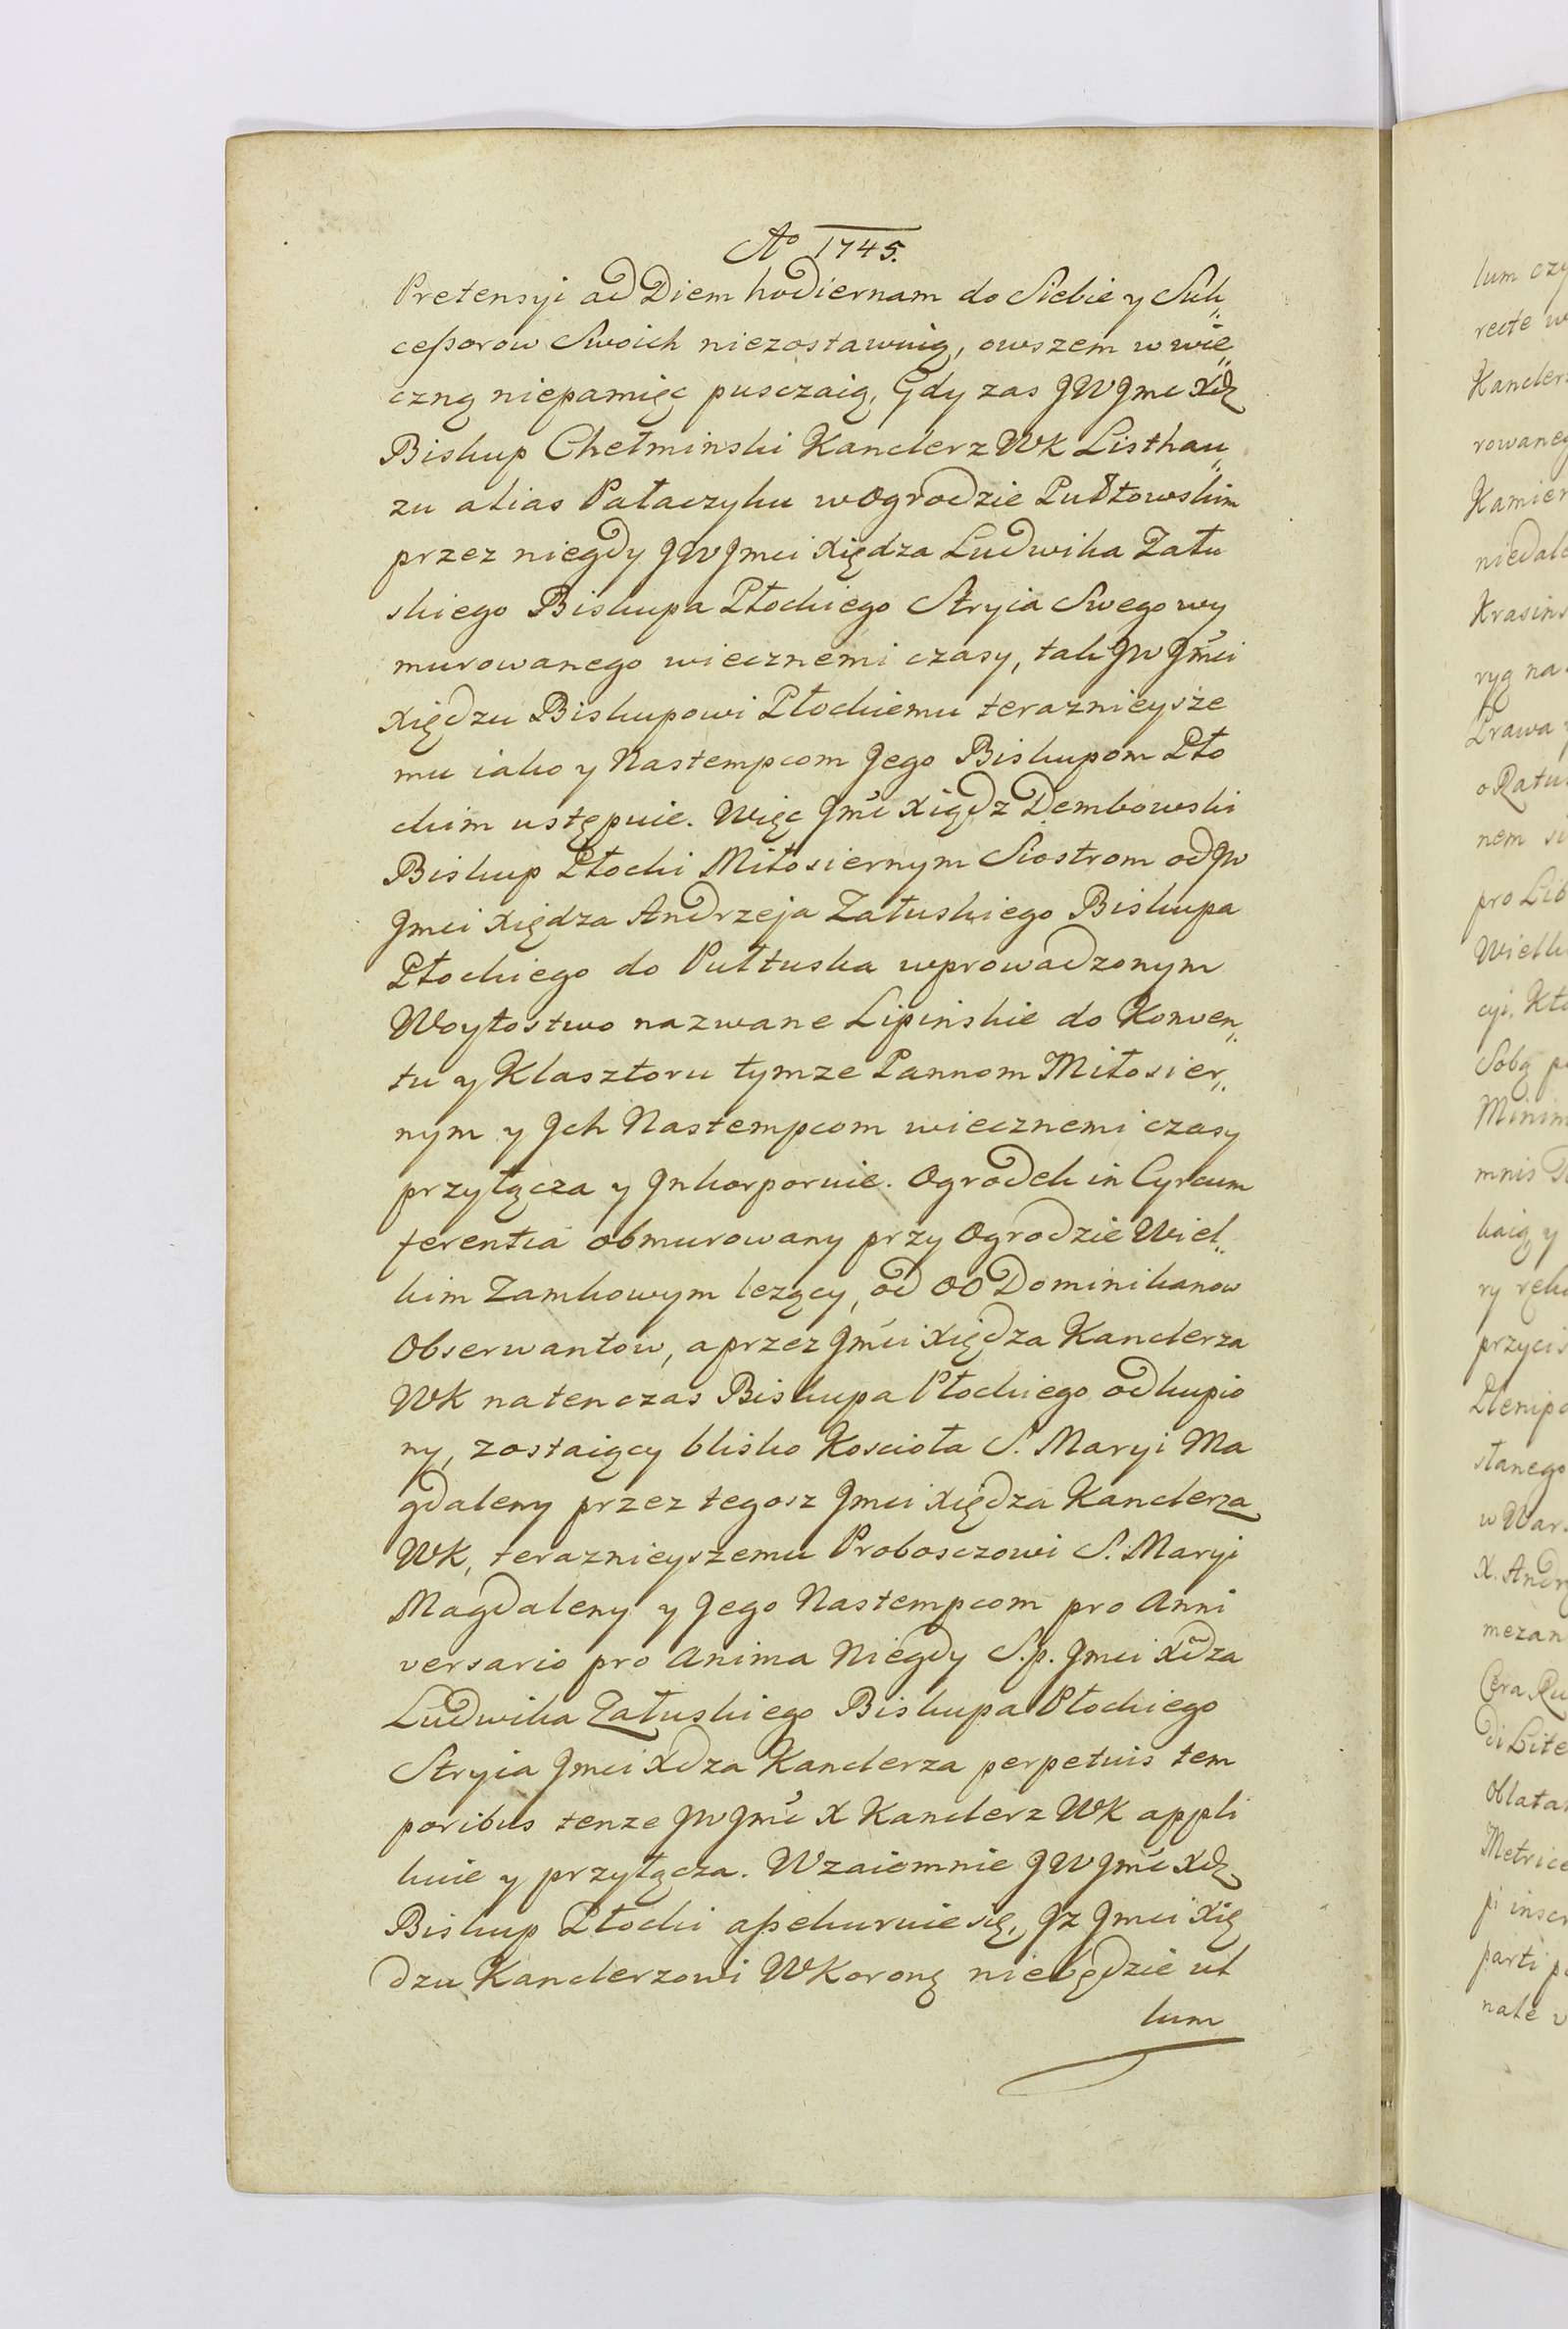 Ao 1745.
Pretensyi ad Diem hodiernam do Siebie y Suk„
ceßorow Swoich niezostawuią, owszem w wie„
czną niepamięc pusczaią, Gdy zas JWJmc Xdz
Biskup Chełminski Kanclerz WK Listhau„
zu alias Pałaczyku w Ogrodzie Pułtowskim
przez niegdy JWJmci Xiędza Ludwika Zału
skiego Biskupa Płockiego Stryia Swego wy
murowanego wiecznemi czasy, tak JW Jmci
Xiędzu Biskupowi Płockiemu teraznieysze
mu iako y Nastempcom Jego Biskupom Pło
ckim ustępuie. Więc Jmć Xiądz Dembowski
Biskup Płocki Miłosiernym Siostrom od JW
Jmci Xiędza Andrzeja Załuskiego Biskupa
Płockiego do Pułtuska wprowadzonym
Woytostwo nazwane Lipińskie do Konwen„
tu y Klasztoru tymze Pannom Miłosier„
nym y Jch Nastempcom wiecznemi czasy
przyłącza y Jnkorporuie. Ogrodek in Cyrcum
ferentia obmurowany przy Ogrodzie Wiel„
kim Zamkowym lezący, od OO Dominikanow
Obserwantow, a przez Jmći Xiędza Kanclerza
WK natenczas Biskupa Płockiego odkupio
ny, zostaiący blisko Koscioła S. Maryi Ma
gdaleny przez tegosz Jmci Xiędza Kanclerza
WK, teraznieyszemu Probosczowi S. Maryi
Magdaleny y Jego Nastempcom pro Anni
versario pro Anima Niegdy S.p. Jmci Xdza
Ludwika Załuskiego Biskupa Płockiego
Stryia Jmci Xdza Kanclerza perpetuis tem
poribus tenze JWJmć X Kanclerz WK appli
kuie y przyłącza. Wzaiemnie JWJmć Xdz
Biskup Płocki aßekuruie się, Jz Jmci Xię
dzu Kanclerzowi WKoronę niebędzie ul
lum
lum czy
recte w
Kancler
rowaneg
Kamien
niedale
Krasins
ryą na
Prawa y
o Ratu
nem si
pro Lib
Wielk
cyi, Kt
Sobą p
Minim
mnis
kaią y
ry ręk
przycis
Plenip
słanego
w War
X. Andr
mezan
Cera Ru
di Lite
Oblata
Metrice
pi inser
parti p
nale v